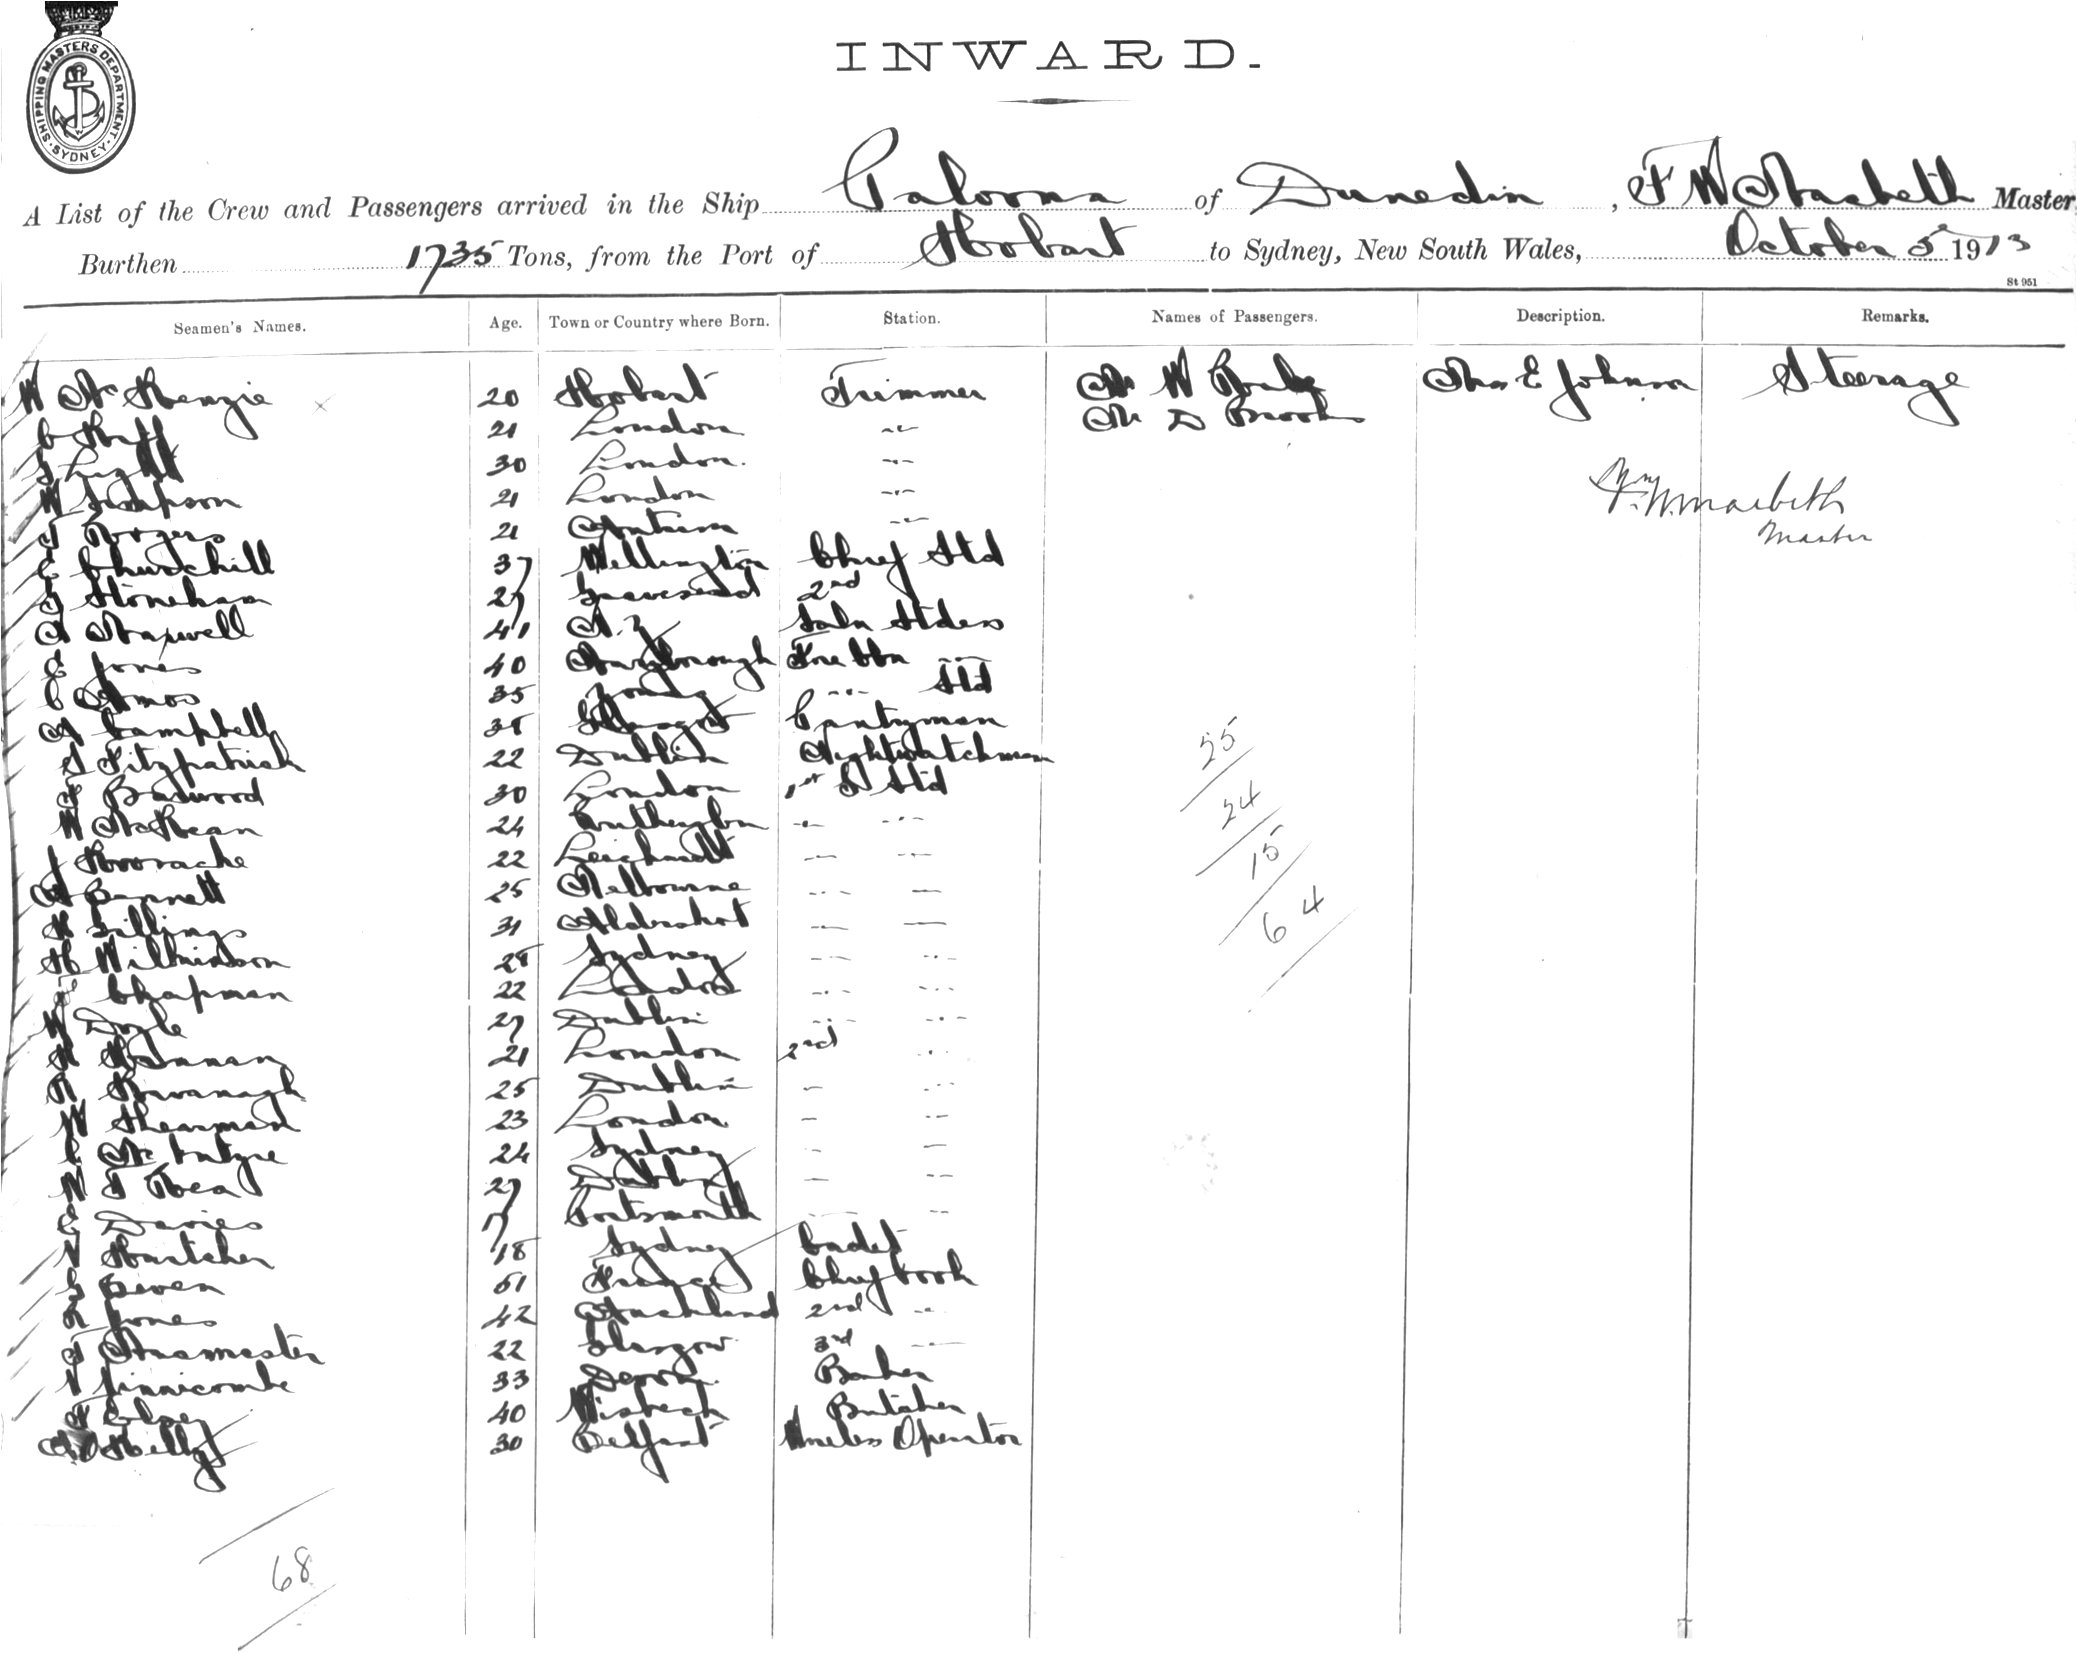 SHIPPING MASTERS DEPARTMENT. SYDNEY.
INWARD.
A List of the Crew and Passengers arrived in the Ship Paloona of Dunedin, F W Macbeth Master
Burthen 1735 Tons, from the Port of Hobart to Sydney, New South Wales, October 5 1913
St 951
Seamen's Names. Age. Town or Country where Born. Station. Names of Passengers. Description. Remarks.
W McKenzie 20 Hobart Trimmer Mr W Mr E Johnson Steerage
21 London -"- Mr D Brooks
30 London. -"-
W Simpson 21 London -"-
T Rogers 21 Antrim -"-
E Churchill 37 Wellington Chief Std
G Stoneham 27 Gravesend 2nd
A Maxwell 41 N.Z Saln Stdess
E Jones 40 Maryborough Fore Cbn -"-
C Amos 35 -"- Std
A Campbell 38 Glasgow Pantryman
S Fitzpatrick 22 Dublin Nightwatchman
30 London 1st S Std
W McKean 24 -"- -"-
J 22 Leichardt -"- -"-
A Bennett 25 Melbourne -"- -"-
H Gillings 31 Aldershot -"- -"-
H Wilkinson 28 Sydney -"- -"-
Chapman 22 London -"- -"-
W Doyle 27 Dublin -"- -"-
21 London 2nd -"-
R Kavanagh 25 Dublin -"- -"-
W Shearman 23 London -"- -"-
C McIntyre 24 Sydney -"- -"-
W J Rea 27 Dublin -"- -"-
E Davies 17 Portsmouth -"- -"-
18 Sydney Cadet
G Beven 51 France Chief Cook
R Jones 42 Auckland 2nd -"-
22 Glasgow 3rd -"-
Jinnicombe 33 Devon. Baker
40 Wisbech Butcher
Kelly 30 Belfast Wireless Operator
F. W. Macbeth
Master
55
24
15
64
68